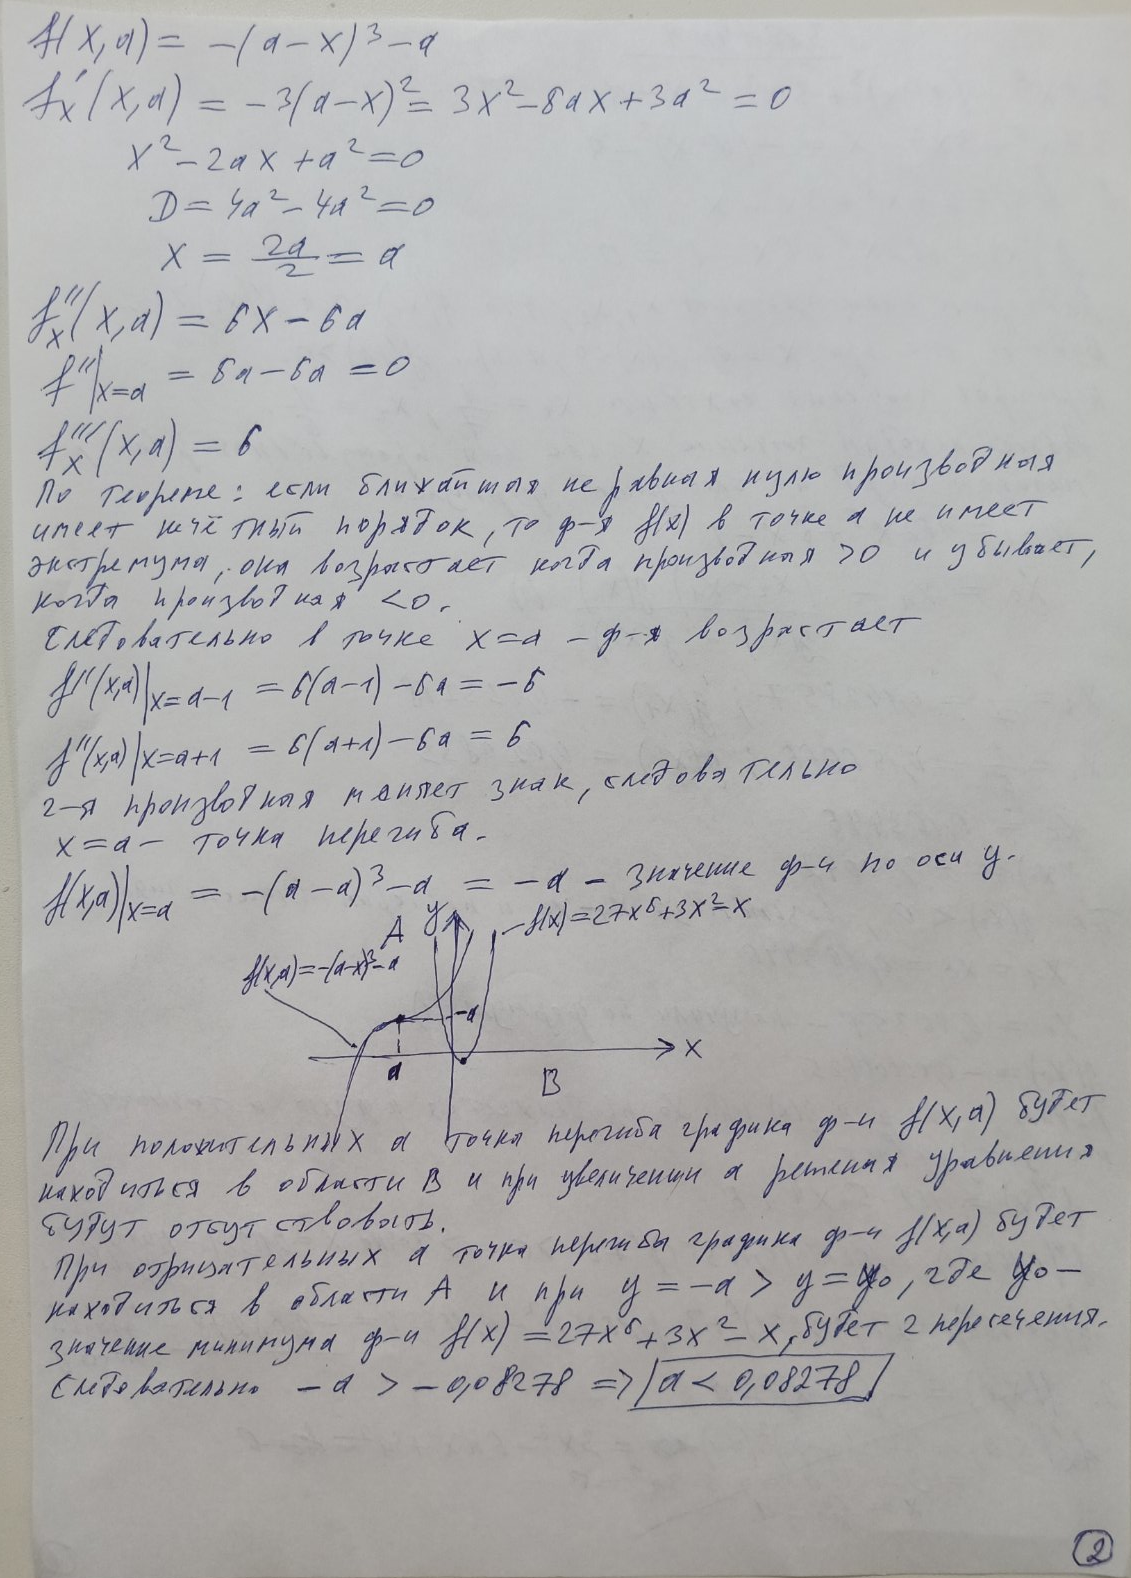 f(x,a) = -(a-x)³-a
f'ₓ(x,a) = -3(a-x)² = 3x²-6ax+3a² = 0
x²-2ax+a²=0
D=4a²-4a²=0
x = 2a/2 = a
f''ₓ(x,a) = 6x-6a
f''|ₓ₌ₐ = 6a-6a = 0
f'''ₓ(x,a) = 6
По теореме: если ближайшая не равная нулю производная
имеет нечётный порядок, то ф-я f(x) в точке a не имеет
экстремума, она возрастает когда производная >0 и убывает,
когда производная <0.
Следовательно в точке x=a - ф-я возрастает
f''(x,a)|x=a-1 = 6(a-1)-6a = -6
f''(x,a)|x=a+1 = 6(a+1)-6a = 6
2-я производная меняет знак, следовательно
x=a - точка перегиба.
f(x,a)|x=a = -(a-a)³-a = -a - значение ф-и по оси y.
A y -f(x)=27x⁶+3x²-x
f(x,a)=-(a-x)³-a
-a
x
a
B
При положительных a точка перегиба графика ф-и f(x,a) будет
находиться в области B и при увеличении a решения уравнения
будут отсутствовать.
При отрицательных a точка перегибы графика ф-и f(x,a) будет
находиться в области A и при y=-a > y=y₀, где y₀ -
значение минимума ф-и f(x)=27x⁶+3x²-x, будет 2 пересечения.
Следовательно -a > -0,08278 => a < 0,08278
2